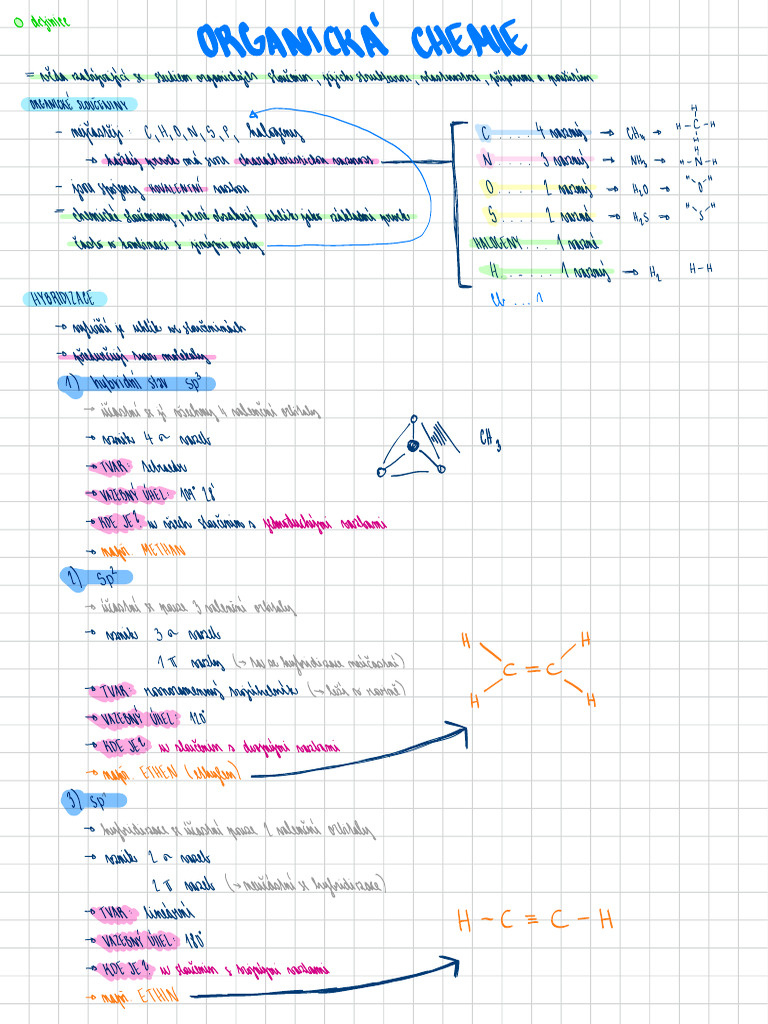 definice
ORGANICKÁ CHEMIE
= věda zabývající se studiem organických sloučenin, jejich strukturou, vlastnostmi, přípravou a použitím
ORGANICKÉ SLOUČENINY
- nejčastěji: C, H, O, N, S, P, halogeny
→ každý prvek má svou charakteristickou vaznost
- jsou spojeny KOVALENTNÍ vazbou
= chemické sloučeniny, které obsahují uhlík jako základní prvek
často v kombinaci s jinými prvky
C ..... 4 vazný → CH4 →
H
H-C-H
H
N ..... 3 vazný → NH3 → H-N-H
H
O ..... 2 vazný → H2O → H O H
S ..... 2 vazné → H2S → H S H
HALOGENY .... 1 vazné
H ...... 1 vazný → H2 H-H
Cl ... 1
HYBRIDIZACE
→ vysvětlí je uhlík ve sloučeninách
→ předurčují tvar molekuly
1) hybridní stav sp3
→ účastní se jí všechny 4 valenční orbitaly
→ vznik 4 σ vazeb
→ TVAR: tetraedr
→ VAZEBNÝ ÚHEL: 109° 28'
→ KDE JE?: v všech sloučenin s jednoduchými vazbami
→ např. METHAN
CH3
2) sp2
→ účastní se pouze 3 valenční orbitaly
→ vznik 3 σ vazeb
1 π vazby (→ ta se hybridizace neúčastní)
→ TVAR: rovnoramenný trojúhelník (→ leží v rovině)
→ VAZEBNÝ ÚHEL: 120°
→ KDE JE? v sloučenin s dvojnými vazbami
→ např. ETHEN (ethylen)
H H
C = C
H H
3) sp1
→ hybridizace se účastní pouze 2 valenční orbitaly
→ vznik 2 σ vazeb
2 π vazeb (→ neúčastní se hybridizace)
→ TVAR: lineární
→ VAZEBNÝ ÚHEL: 180°
→ KDE JE? v sloučenin s trojnými vazbami
→ např. ETHIN
H - C ≡ C - H